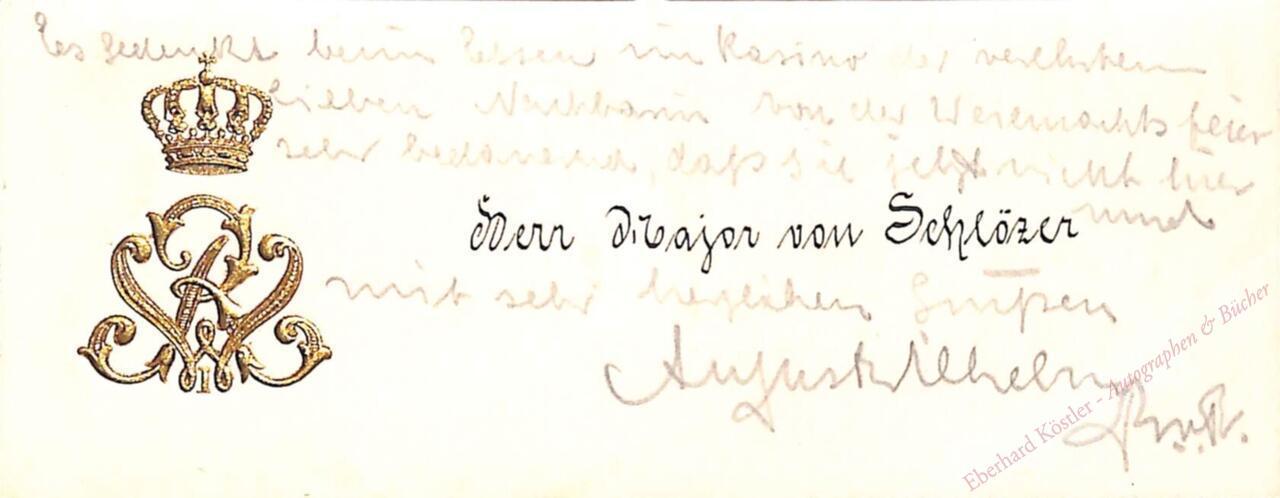 Es gedenkt beim Essen im Kasino der verehrten
lieben Nachbarin von der Weihnachtsfeier
sehr bedauernd, daß sie jetzt nicht hier
und
Herr Major von Schlözer
mit sehr herzlichen Grüßen
August Wilhelm
Pr.v.Pr.
Eberhard Köstler - Autographen & Bücher